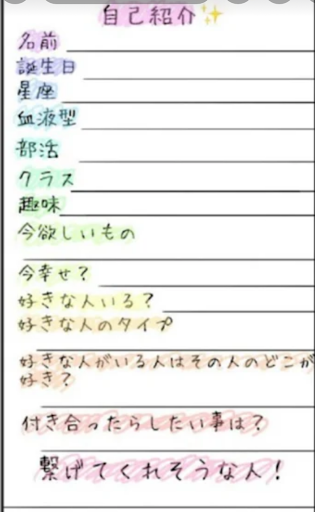 自己紹介✨
名前
誕生日
星座
血液型
部活
クラス
趣味
今欲しいもの
今幸せ?
好きな人いる?
好きな人のタイプ
好きな人がいる人はその人のどこが
好き?
付き合ったらしたい事は?
繋げてくれそうな人!